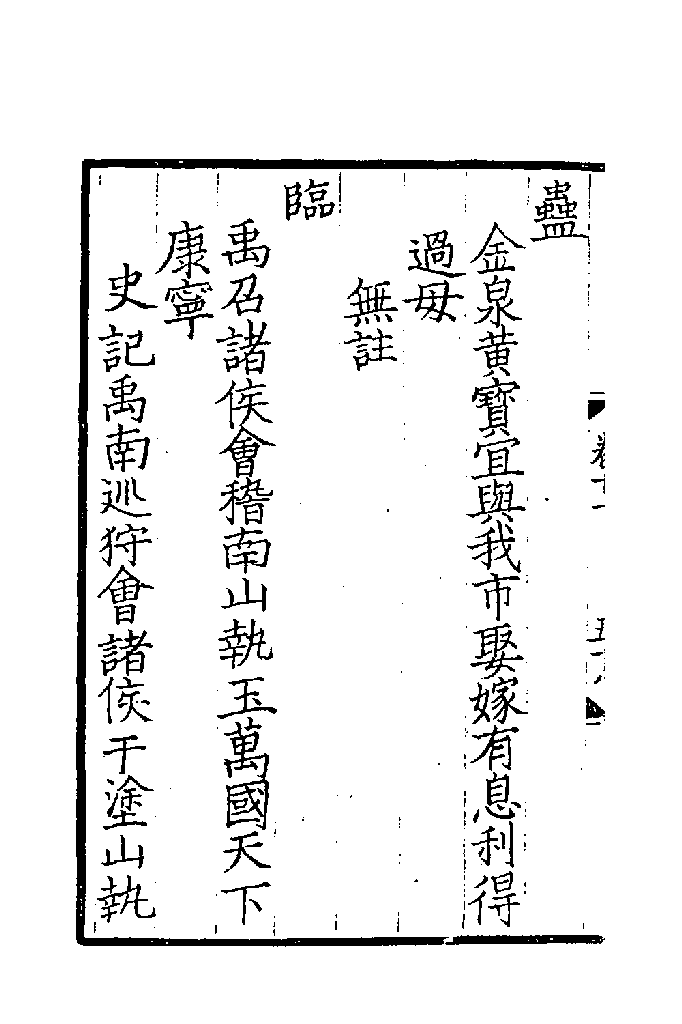 蠱
金泉黄寳宜與我市娶嫁有息利得
過母
無註
臨
禹召諸侯會稽南山執玉萬國天下
康寧
史記禹南巡狩會諸侯于塗山執